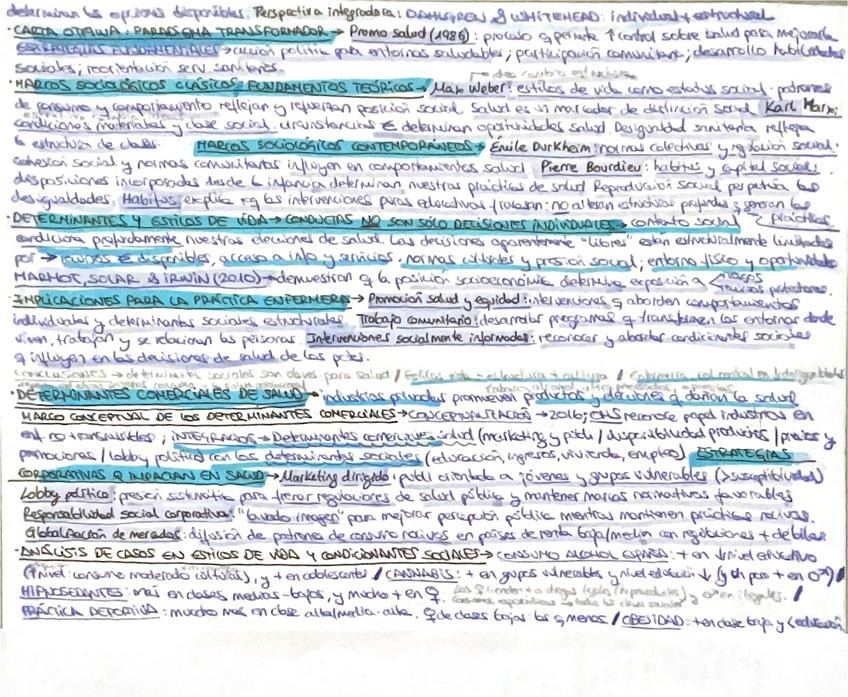 determinan las opciones disponibles. Perspectiva integradora: DAHLGREN & WHITEHEAD: individual + estructural
· CARTA OTTAWA: PARADIGMA TRANSFORMADOR → Promo Salud (1986): proceso q permite ↑ control sobre salud para mejorarla
ESTRATEGIAS FUNDAMENTALES → acción política para entornos saludables; participación comunitaria; desarrollo habilidades
sociales; reorientación serv. sanitarios.
· MARCOS SOCIOLÓGICOS CLÁSICOS: FUNDAMENTOS TEÓRICOS → Max Weber: estilos de vida como estatus social: patrones
de consumo y comportamiento reflejan y refuerzan posición social. Salud es un marcador de distinción social Karl Marx:
condiciones materiales y clase social, circunstancias determinan oportunidades salud. Desigualdad sanitaria refleja
estructura de clases. MARCOS SOCIOLÓGICOS CONTEMPORÁNEOS → Émile Durkheim: normas colectivas y regulación social.
cohesión social y normas comunitarias influyen en comportamientos salud. Pierre Bourdieu: habitus y capital social:
disposiciones incorporadas desde la infancia determinan nuestras prácticas de salud. Reproducción social perpetúa las
desigualdades. Habitus explica xq las intervenciones puras educativas fracasan: no alteran estructuras profundas q generan las
· DETERMINANTES Y ESTILOS DE VIDA → CONDUCTAS NO SON SÓLO DECISIONES INDIVIDUALES → contexto social prácticas
condiciona profundamente nuestras elecciones de salud. Las decisiones aparentemente "libres" están estructuralmente limitadas
por → recursos disponibles, acceso a info y servicios. normas culturales y presión social; entorno físico y oportunidades
MARMOT, SOLAR & IRWIN (2010) → demuestran q la posición socioeconómica determina exposición a < riesgos
protectores.
· IMPLICACIONES PARA LA PRÁCTICA ENFERMERA → Promoción salud y equidad: intervenciones q aborden comportamientos
individuales y determinantes sociales estructurales. Trabajo comunitario: desarrollar programas q transformen los entornos donde
viven, trabajan y se relacionan las personas. Intervenciones socialmente informadas: reconocer y abordar condicionantes sociales
q influyen en las decisiones de salud de los ptes.
CONCLUSIONES → determinantes sociales son claves para salud / Estilos vida = estructura + cultura /
· DETERMINANTES COMERCIALES DE SALUD → industrias privadas promueven productos y decisiones q dañan la salud
MARCO CONCEPTUAL DE LOS DETERMINANTES COMERCIALES → CONCEPTUALIZACIÓN → 2016; OMS reconoce papel industrias en
enf no transmisibles; INTEGRADOS → Determinantes comerciales salud (marketing y publi / disponibilidad productos / precios y
promociones / lobby político) con los determinantes sociales (educación, ingresos, vivienda, empleo) ESTRATEGIAS
CORPORATIVAS Q IMPACTAN EN SALUD → Marketing dirigido: publi orientada a jóvenes y grupos vulnerables (> susceptibilidad)
Lobby político: presión sistemática para frenar regulaciones de salud pública y mantener marcos normativos favorables
Responsabilidad social corporativa: "lavado imagen" para mejorar percepción pública mientras mantienen prácticas nocivas.
Globalización de mercados: difusión de patrones de consumo nocivos en países de renta baja/media con regulaciones + débiles
· ANÁLISIS DE CASOS EN ESTILOS DE VIDA Y CONDICIONANTES SOCIALES → CONSUMO ALCOHOL ESPAÑA: + en ↓ nivel educativo
(↑ nivel: consumo moderado cultural), y + en adolescentes / CANNABIS: + en grupos vulnerables y nivel educación ↓ (y un poco + en ♂) /
HIPNOSEDANTES: más en clases medias-bajas, y mucho + en ♀. /
PRÁCTICA DEPORTIVA: mucho más en clase alta/media-alta. ♀ de clases bajas las q menos. / OBESIDAD: + en clase baja y < educación